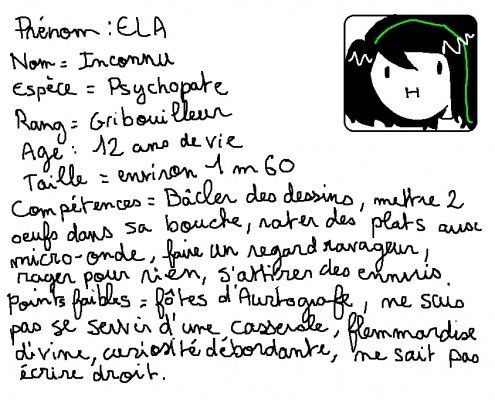 Prénom : ELA
Nom = Inconnu
Espèce = Psychopate
Rang = Gribouilleur
Age : 12 ans de vie
Taille = environ 1 m 60
Compétences = Bâcler des dessins, mettre 2
oeufs dans sa bouche, rater des plats aux
micro-onde, faire un regard ravageur,
rager pour rien, s'attirer des ennuis.
Points faibles = fôtes d'Aurtograffe, ne sais
pas se servir d'une casserole, flemmardise
divine, curiosité débordante, ne sait pas
écrire droit.